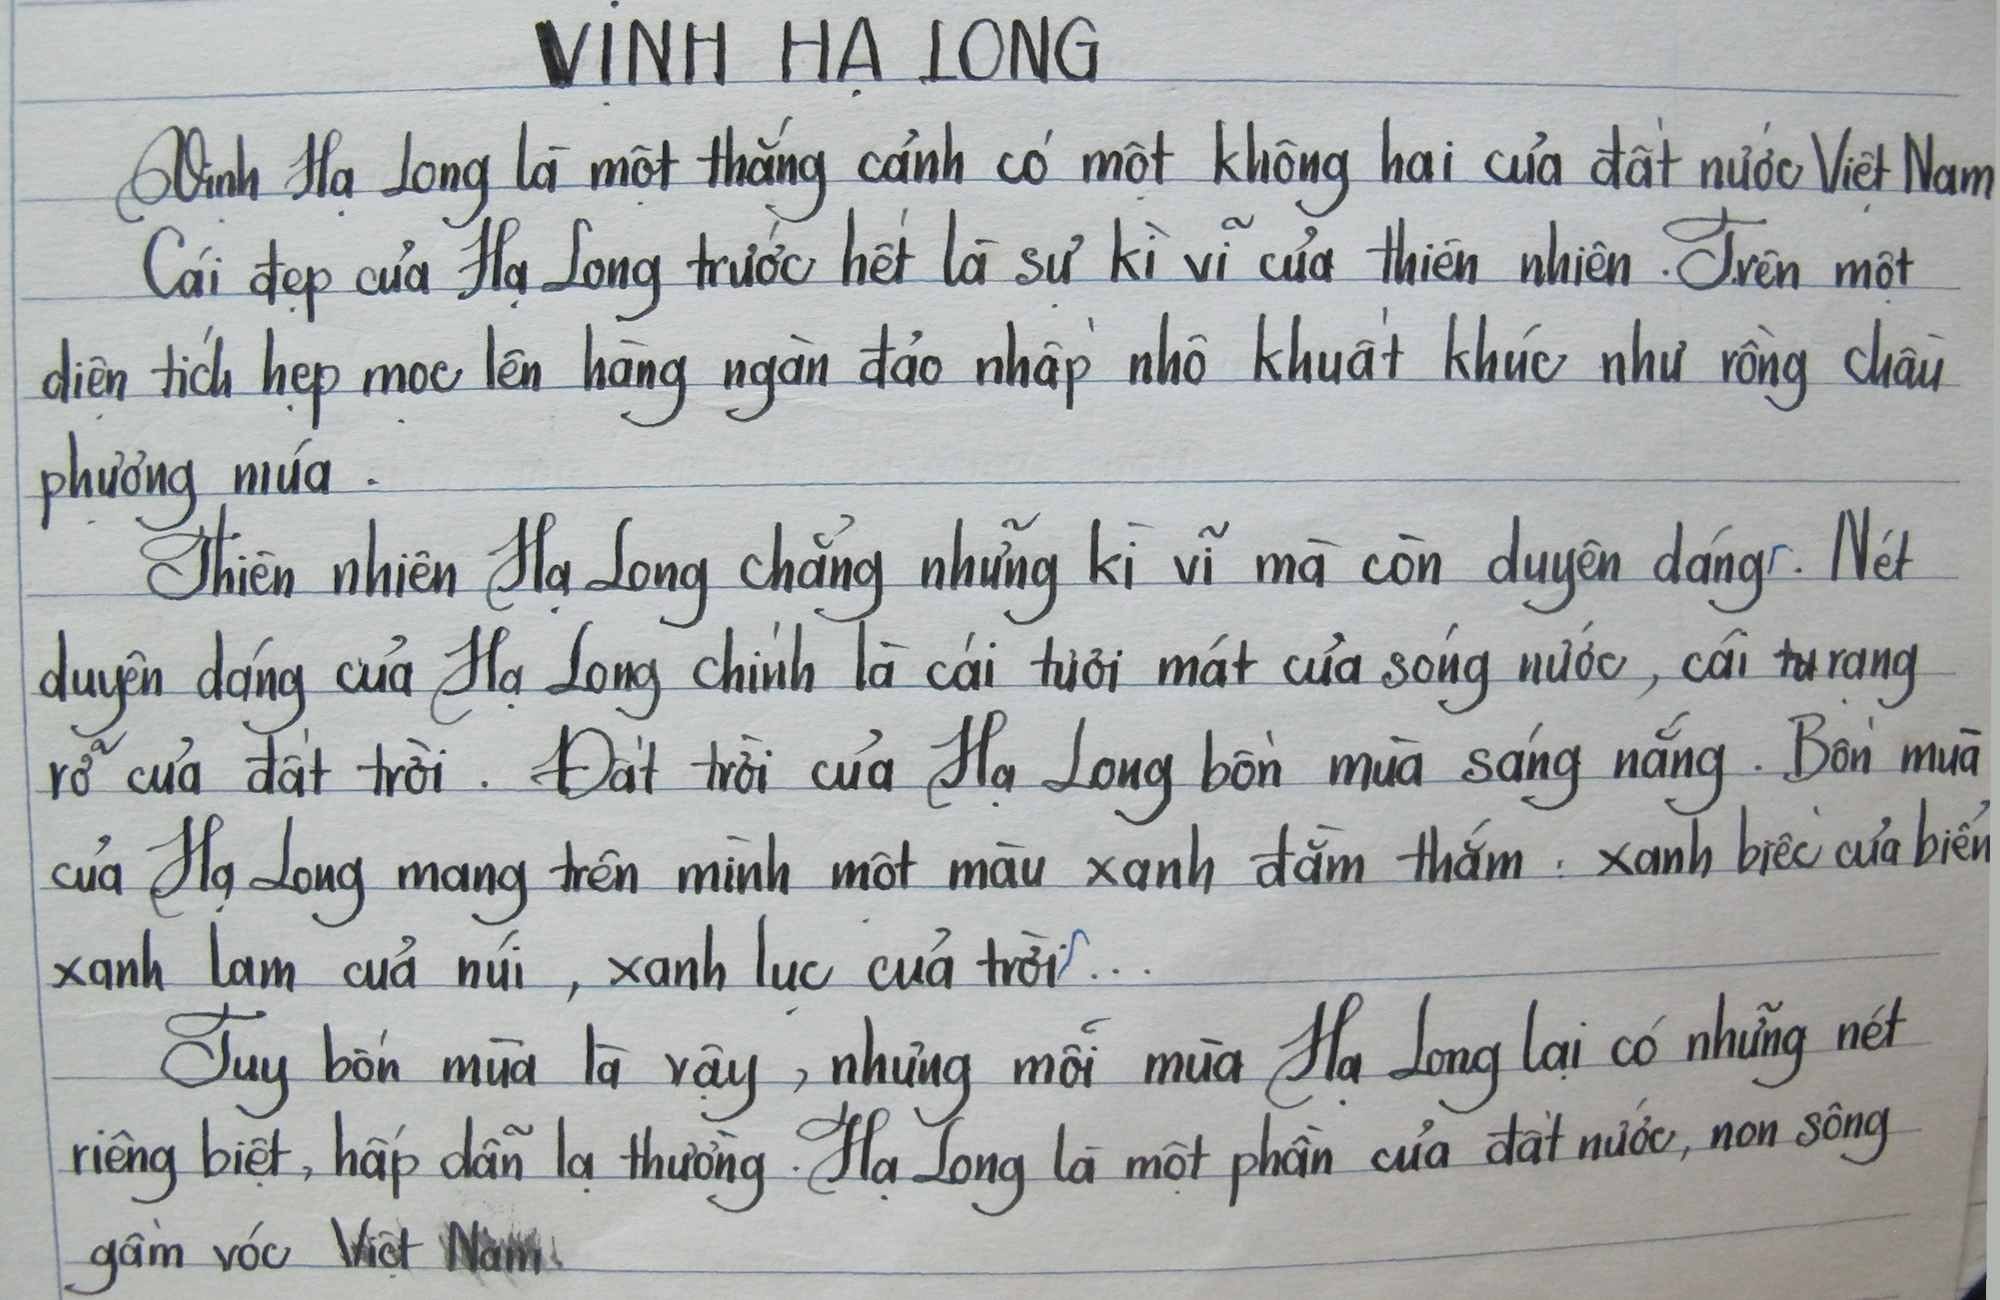 VỊNH HẠ LONG
Vịnh Hạ Long là một thắng cảnh có một không hai của đất nước Việt Nam
Cái đẹp của Hạ Long trước hết là sự kì vĩ của thiên nhiên. Trên một
diện tích hẹp mọc lên hàng ngàn đảo nhấp nhô khuất khúc như rồng chầu
phượng múa.
Thiên nhiên Hạ Long chẳng những kì vĩ mà còn duyên dáng. Nét
duyên dáng của Hạ Long chính là cái tươi mát của sóng nước, cái rạng
rỡ của đất trời. Đất trời của Hạ Long bốn mùa sáng nắng. Bốn mùa
của Hạ Long mang trên mình một màu xanh đằm thắm: xanh biếc của biển
xanh lam của núi, xanh lục của trời...
Tuy bốn mùa là vậy, nhưng mỗi mùa Hạ Long lại có những nét
riêng biệt, hấp dẫn lạ thường. Hạ Long là một phần của đất nước, non sông
gấm vóc Việt Nam